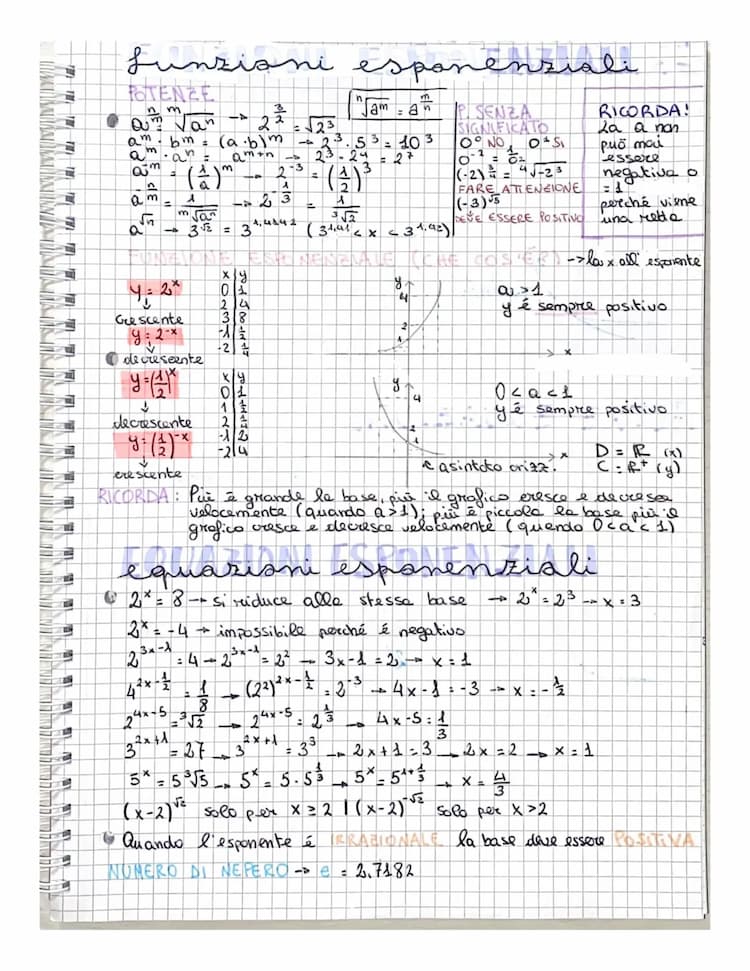 funzioni esponenziali
POTENZE
ⁿ√aᵐ = a^(m/n)
a^(n/m) = ᵐ√aⁿ → 2^(3/2) = √2³
aᵐ · bᵐ = (a·b)ᵐ → 2³ · 5³ = 10³
aᵐ · aⁿ = aᵐ⁺ⁿ → 2³ · 2⁴ = 2⁷
a⁻ᵐ = (1/a)ᵐ → 2⁻³ = (1/2)³
a^(-n/m) = 1/ᵐ√aⁿ → 2^(-1/3) = 1/³√2
a^√n → 3^√2 = 3^1,4142 (3^1,41 < x < 3^1,42)
P. SENZA
SIGNIFICATO
0⁰ NO 0¹ SI
0⁻² = 1/0 =
(-2)^(3/4) = ⁴√-2³
FARE ATTENZIONE
(-3)^√5
DEVE ESSERE POSITIVO
RICORDA!
la a non
può mai
essere
negativa o
= 1
perché viene
una retta
FUNZIONE ESPONENZIALE (CHE COS'È?) → la x all'esponente
y = 2ˣ
↓
crescente
y = 2⁻ˣ
↓
decrescente
x y
0 1
2 4
3 8
-1 1/2
-2 1/4
y
4
2
1
x
a > 1
y è sempre positivo
y = (1/2)ˣ
↓
decrescente
y = (1/2)⁻ˣ
↓
crescente
x y
0 1
1 1/2
2 1/4
-1 2
-2 4
y
4
2
1
x
asintoto orizz.
0 < a < 1
y è sempre positivo
D = ℝ (x)
C = ℝ⁺ (y)
RICORDA: Più è grande la base, più il grafico cresce e decresce
velocemente (quando a > 1); più è piccola la base più il
grafico cresce e decresce velocemente (quando 0 < a < 1)
equazioni esponenziali
2ˣ = 8 → si riduce alla stessa base → 2ˣ = 2³ → x = 3
2ˣ = -4 → impossibile perché è negativo
2³ˣ⁻¹ = 4 → 2³ˣ⁻¹ = 2² → 3x-1 = 2 → x = 1
4^(2x-1/2) = 1/8 → (2²)^(2x-1/2) = 2⁻³ → 4x-1 = -3 → x = -1/2
2⁴ˣ⁻⁵ = ³√2 → 2⁴ˣ⁻⁵ = 2^(1/3) → 4x-5 = 1/3
3²ˣ⁺¹ = 27 → 3²ˣ⁺¹ = 3³ → 2x+1 = 3 → 2x = 2 → x = 1
5ˣ = 5³√5 → 5ˣ = 5·5^(1/3) → 5ˣ = 5^(1+1/3) → x = 4/3
(x-2)^√2 solo per x ≥ 2 | (x-2)^-√2 solo per x > 2
Quando l'esponente è IRRAZIONALE la base deve essere POSITIVA
NUMERO DI NEPERO → e = 2,7182